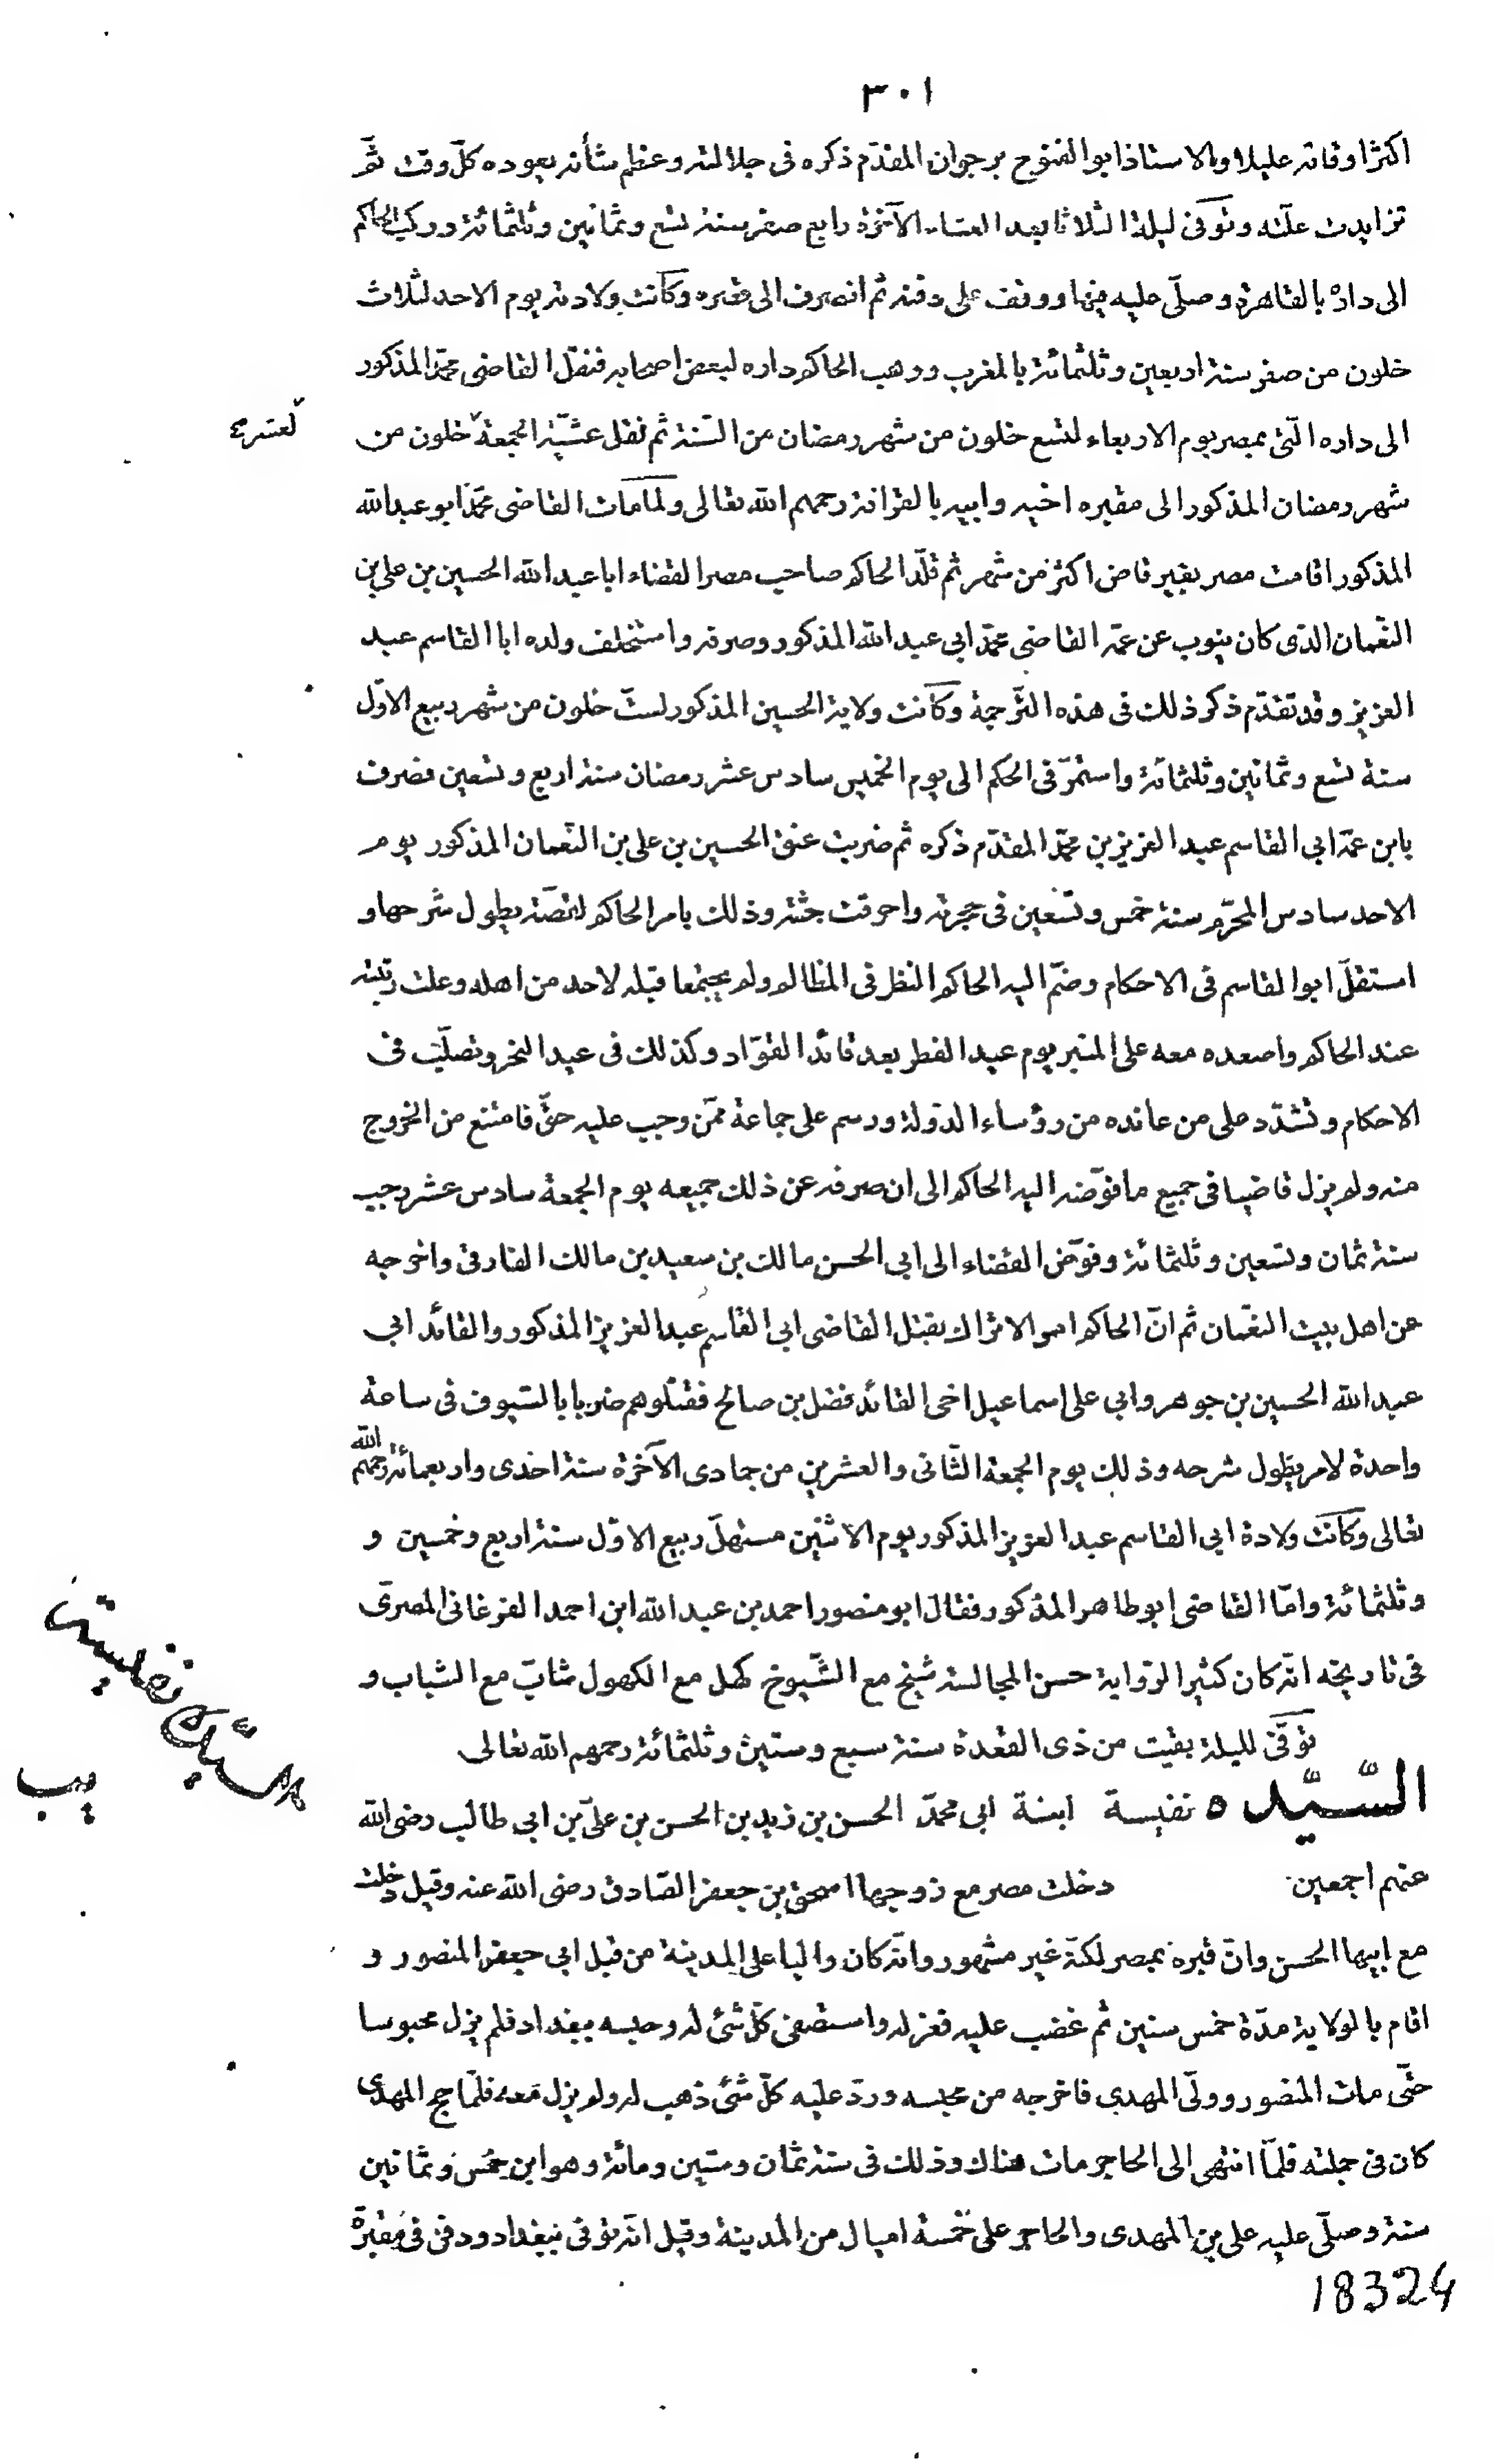 ٣٠١
اكثر اوقاته عليلا والاستاذ ابوالفتوح برجوان المقدّم ذكره فى جلالته وعظم شأنه يعوده كلّ وقت ثمّ
تزايدت علّته وتوفى ليلة الثلاثا بعد العشاء الآخرة رابع صفر سنة تسع وثمانين وثلثمائة وركب الحاكم
الى داره بالقاهرة وصلّى عليه فيها ووقف على دفنه ثم انصرف الى قصره وكانت ولادته يوم الاحد لثلاث
خلون من صفر سنة اربعين وثلثمائة بالمغرب ووهب الحاكم داره لبعض اصحابه فنقل القاضى محمّد المذكور
الى داره الّتى بمصر يوم الاربعاء لتسع خلون من شهر رمضان من السّنة ثم نقل عشيّة الجمعة خلون من
لعشر
شهر رمضان المذكور الى مقبره اخيه وابيه بالقرافة رحمهم الله تعالى ولمّا مات القاضى محمّد ابو عبدالله
المذكور اقامت مصر بغير قاض اكثر من شهر ثم قلّد الحاكم صاحب مصر القضاء ابا عبد الله الحسين بن على بن
النّعمان الذى كان ينوب عن عمّه القاضى محمّد ابى عبد الله المذكور وصرفه واستخلف ولده ابا القاسم عبد
العزيز وقد تقدّم ذكر ذلك فى هذه التّرجمة وكانت ولاية الحسين المذكور لستّ خلون من شهر ربيع الاوّل
سنة تسع وثمانين وثلثمائة واستمرّ فى الحكم الى يوم الخميس سادس عشر رمضان سنة اربع وتسعين فصرف
بابن عمّه ابى القاسم عبد العزيز بن محمّد المقدّم ذكره ثم ضربت عنق الحسين بن على بن النّعمان المذكور يوم
الاحد سادس المحرّم سنة خمس وتسعين فى حجرته واحرقت جثته وذلك بامر الحاكم لقصّة يطول شرحها و
استقلّ ابو القاسم فى الاحكام وضمّ اليه الحاكم النظر فى المظالم ولم يجتمعا قبله لاحد من اهله وعلت رتبته
عند الحاكم واصعده معه على المنبر يوم عيد الفطر بعد قائد القوّاد وكذلك فى عيد النحر وتصلّب فى
الاحكام وتشدّد على من عانده من رؤساء الدّولة ورسم على جماعة ممّن وجب عليه حقّ فامتنع من الخروج
منه ولم يزل قاضيا فى جميع ما فوّضه اليه الحاكم الى ان صرفه عن ذلك جميعه يوم الجمعة سادس عشر رجب
سنة ثمان وتسعين وثلثمائة وفوّض القضاء الى ابى الحسن مالك بن سعيد بن مالك الفارقى واخرجه
عن اهل بيت النعّمان ثم انّ الحاكم امر الاتراك بقتل القاضى ابى القاسم عبد العزيز المذكور والقائد ابى
عبد الله الحسين بن جوهر وابى على اسماعيل اخى القائد فضل بن صالح فقتلوهم ضربا بالسّيوف فى ساعة
واحدة لامر يطول شرحه وذلك يوم الجمعة الثّانى والعشرين من جمادى الآخرة سنة احدى واربعمائة رحمهم الله
تعالى وكانت ولادة ابى القاسم عبد العزيز المذكور يوم الاثنين مستهلّ ربيع الاوّل سنة اربع وخمسين و
وثلثمائة وامّا القاضى ابو طاهر المذكور فقال ابو منصور احمد بن عبد الله ابن احمد الفرغانى المصرى
فى تاريخه انّه كان كثير الرّواية حسن المجالسة شيخ مع الشّيوخ كهل مع الكهول شابّ مع الشباب و
توفّى لليلة بقيت من ذى القعدة سنة سبع وستين وثلثمائة رحمهم الله تعالى
السّيّده نفيسة ابنة ابى محمّد الحسن بن زيد بن الحسن بن علىّ بن ابى طالب رضى الله
السّيّدة نفيسة
عنهم اجمعين دخلت مصر مع زوجها اسحق بن جعفر الصّادق رضى الله عنه وقيل دخلت
مع ابيها الحسن وانّ قبره بمصر لكنّه غير مشهور وانّه كان واليا على المدينة من قبل ابى جعفر المنصور و
اقام بالولاية مدّة خمس سنين ثم غضب عليه فعزله واستصفى كلّ شئ له وحبسه ببغداد فلم يزل محبوسا
حتّى مات المنصور وولّى المهدى فاخرجه من محبسه وردّ عليه كلّ شئ ذهب له ولم يزل معه فلمّا حج المهدى
كان فى جملته فلمّا انتهى الى الحاجر مات هناك وذلك فى سنة ثمان وستين ومائة وهو ابن خمس وثمانين
سنة وصلّى عليه على بن المهدى والحاجر على خمسة اميال من المدينة وقيل انّه توفى ببغداد ودفن فى مقبرة
18324